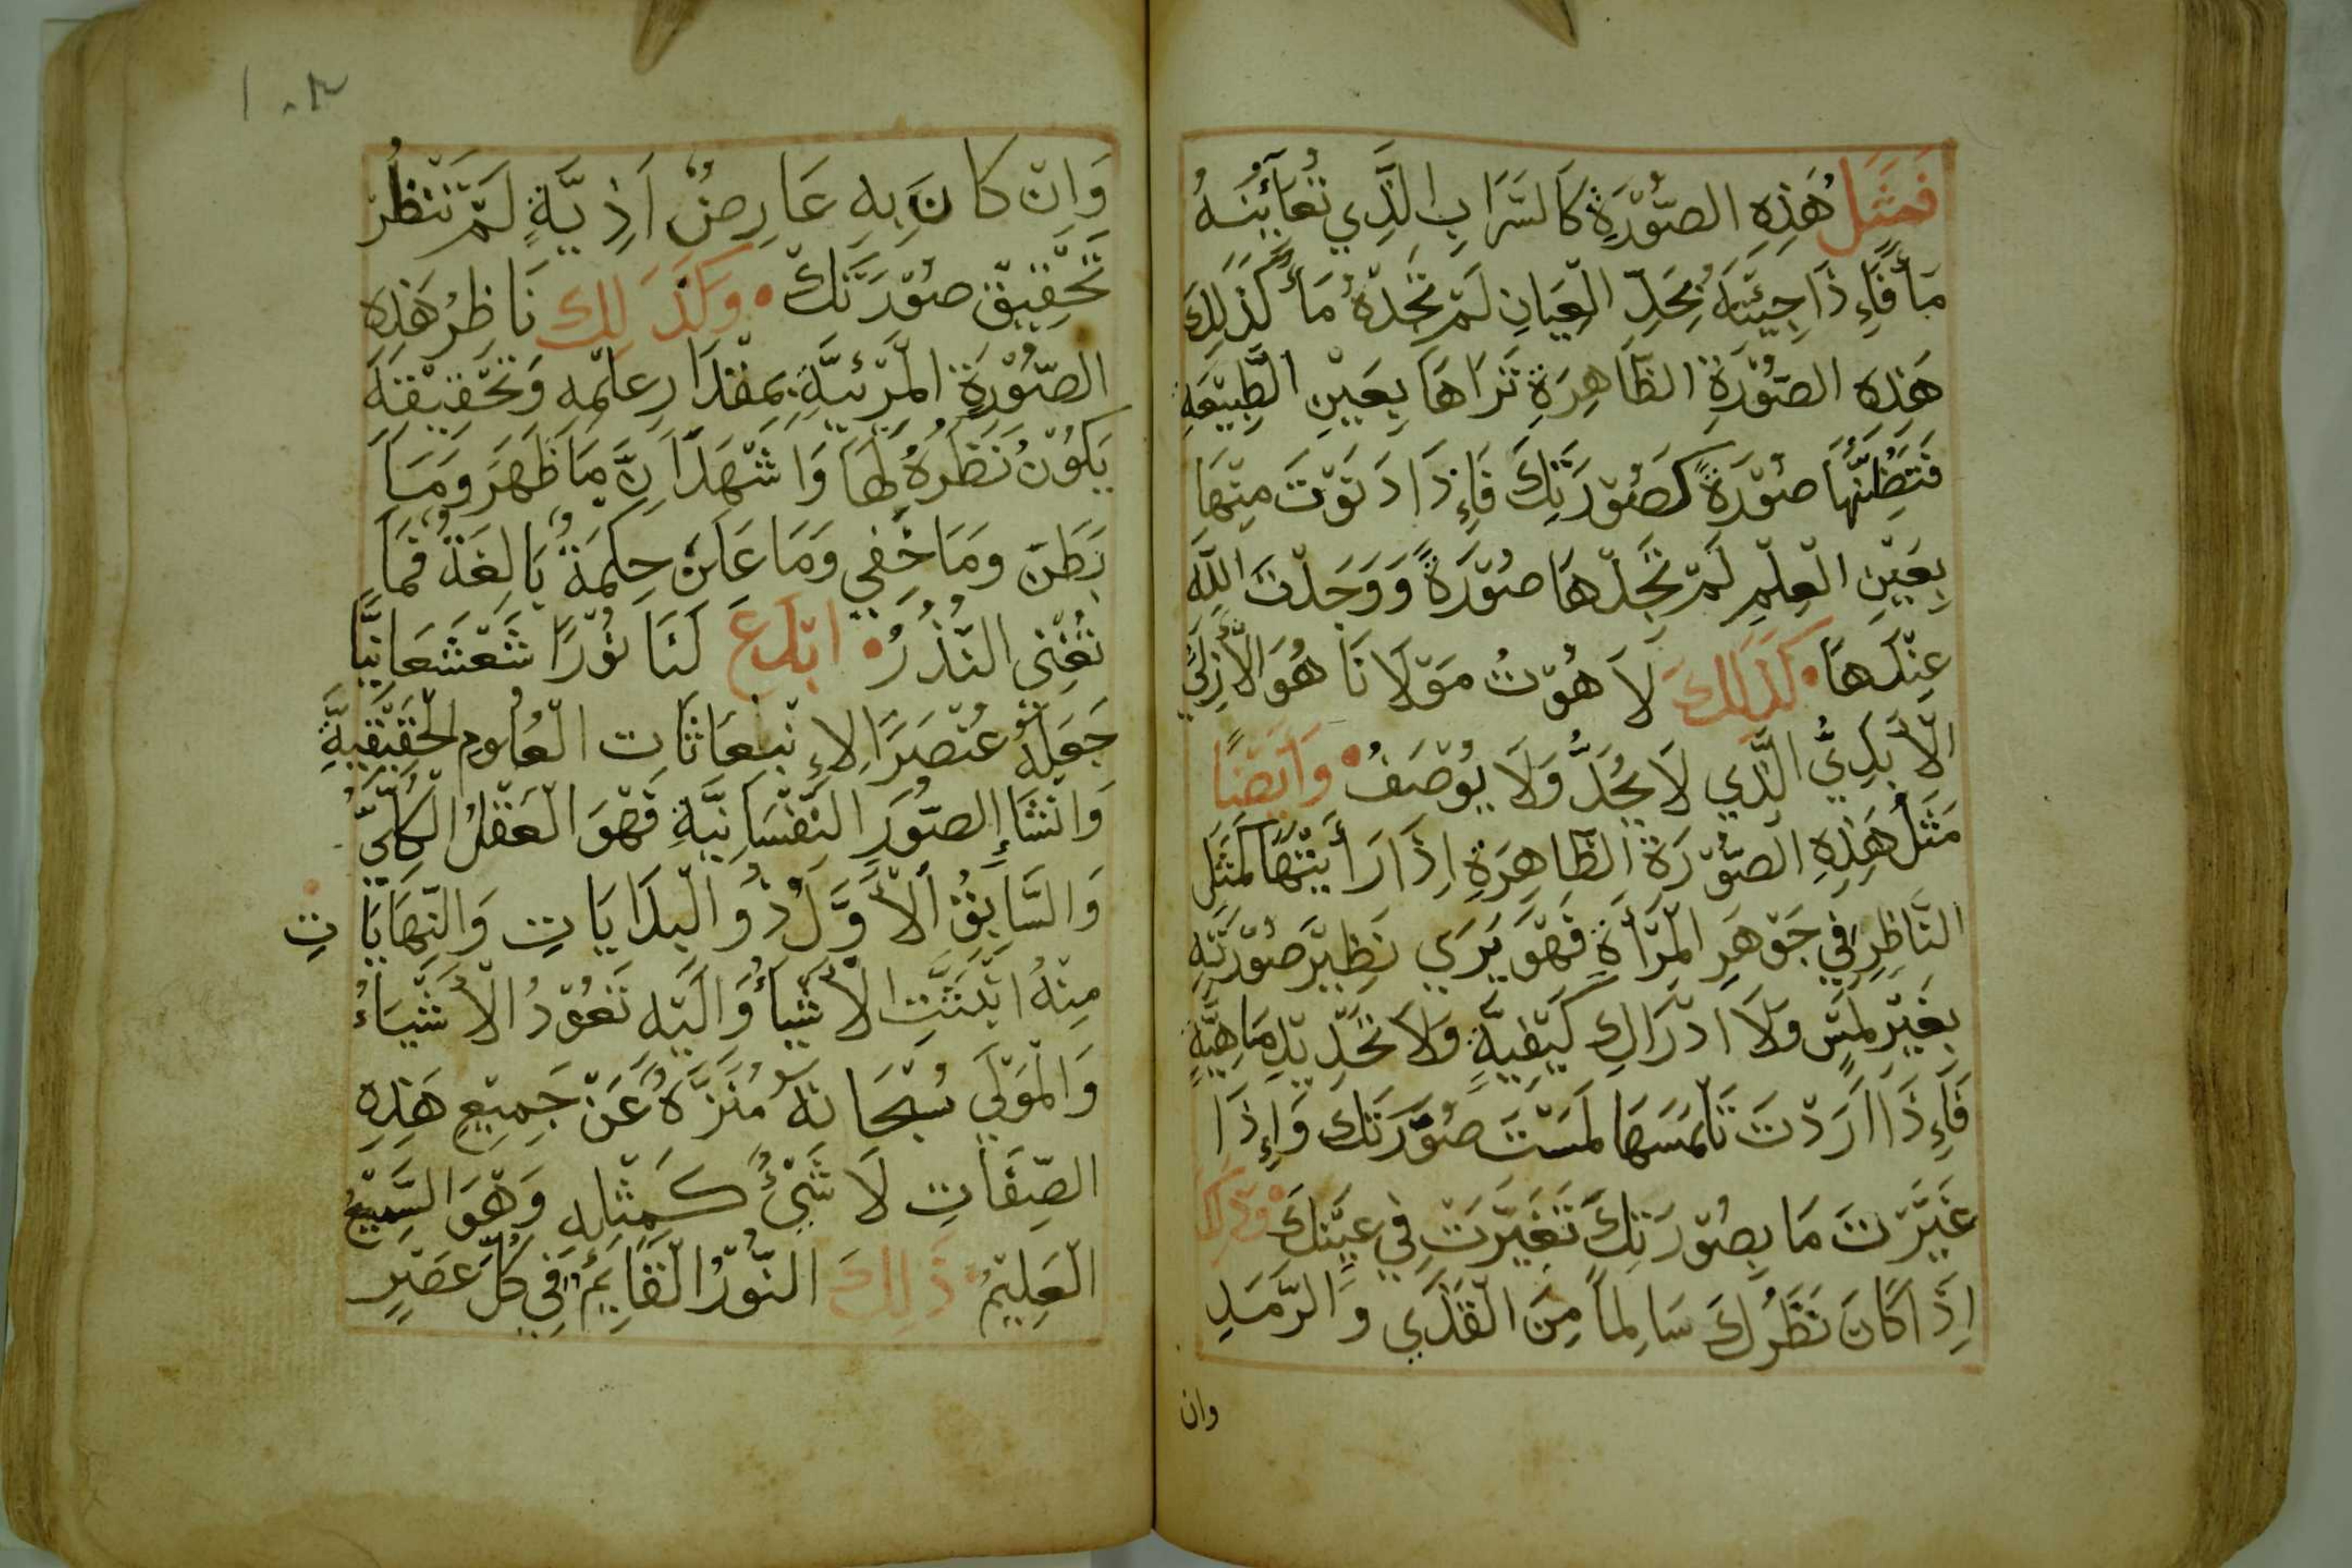 فَمَثَلُ هَذِهِ الصُّوْرَةِ كَالسَّرَابِ الَّذِي تُعَايُنَهُ
مَاً فَاءِذَا جِيْتَهُ بِحَدِّ الْعِيَانِ لَمْ تَجِدْهُ مَاءً كَذَلِكَ
هَذِهِ الصُّوْرَةُ الظَّاهِرَةِ تَرَاهَا بِعَيْنِ الطَّبِيْعَةِ
فَتَظُنُّهَا صُوْرَةً كَصُوْرَتِكَ فَاءِذَا دَنَوْتَ مِنْهَا
بِعَيْنِ الْعِلْمِ لَمْ تَجِدْهَا صُوْرَةً وَوَجَدْتَ اللّٰهَ
عِنْدَهَا • كَذَلِكَ لَاهُوْتُ مَوْلَانَا هُوَ الْأَزَلِيُّ
الْأَبَدِيُّ الَّذِي لَا يُحَدُّ وَلَا يُوْصَفُ • وَاَيْضًا
مَثَلُ هَذِهِ الصُّوْرَةُ الظَّاهِرَةِ اِذَا رَأَيْتَهَا كَمَثَلِ
النَّاظِرِ فِي جَوْهَرِ الْمَرْأَةِ فَهُوَ يَرَي نَظِيْرَ صُوْرَتِهِ
بِغَيْرِ لَمْسٍ وَلَا ادْرَاكِ كَيْفِيَّةٍ وَلَا تَحْدِيْدِ مَاهِيَّةٍ
فَاءِذَا اَرَدْتَ تَلْمَسَهَا لَمَسْتَ صُوْرَتَكَ وَاءِذَا
غَيَّرْتَ مَا بِصُوْرَتِكَ تَغَيَّرَتْ فِي عَيْنِكَ • وَذَلِكَ
اِذَا كَانَ نَظَرُكَ سَالِماً مِنَ الْقَذَي وَالرَّمَدِ
وان
وَاِنْ كَانَ بِهِ عَارِضٌ اَذِيَّةٍ لَمْ تَنْظُرْ
تَحْقِيْقَ صُوْرَتَكَ • وَكَذَلِكَ نَاظِرُ هَذِهِ
الصُّوْرَةِ الْمَرْئِيَّةِ بِمِقْدَارِ عِلْمِهِ وَتَحْقِيْقِهِ
يَكُوْنُ نَظَرُهُ لَهَا وَاشْهَدُ اَنَّ مَا ظَهَرَ وَمَا
بَطَنَ وَمَا خَفِي وَمَا عَلَنَ حِكْمَةٌ بَالِغَةٌ فَمَا
تُغْنِى النُّذُرُ • ابْدَعَ لَنَا نُوْرًا شَعْشَعَانِيًّا
جَعَلَهُ عُنْصَرًا لِاءِنْبِعَاثَاتِ الْعُلُومِ الْحَقِيْقِيَّةِ
وَانْشَاءِ الصُّوَرِ النَّفْسَانِيَّةِ فَهُوَ الْعَقْلُ الْكُلِّيُّ
وَالسَّابِقُ الْأَوَّلُ ذُو الْبِدَايَاتِ وَالنِّهَايَاتِ
مِنْهُ ابْتَدَتِ الْأَشْيَأُ وَالَيْهِ تَعُوْدُ الْأَشْيَاءُ
وَالْمَوْلَي سُبْحَانَهُ مُنَزَّهٌ عَنْ جَمِيْعِ هَذِهِ
الصِّفَاتِ لَا شَيْءٌ كَمِثْلِهِ وَهُوَ السَّمِيْعُ
الْعَلِيْمُ • ذَلِكَ النُّوْرُ الْقَايِمُ فِي كُلِّ عَصْرٍ